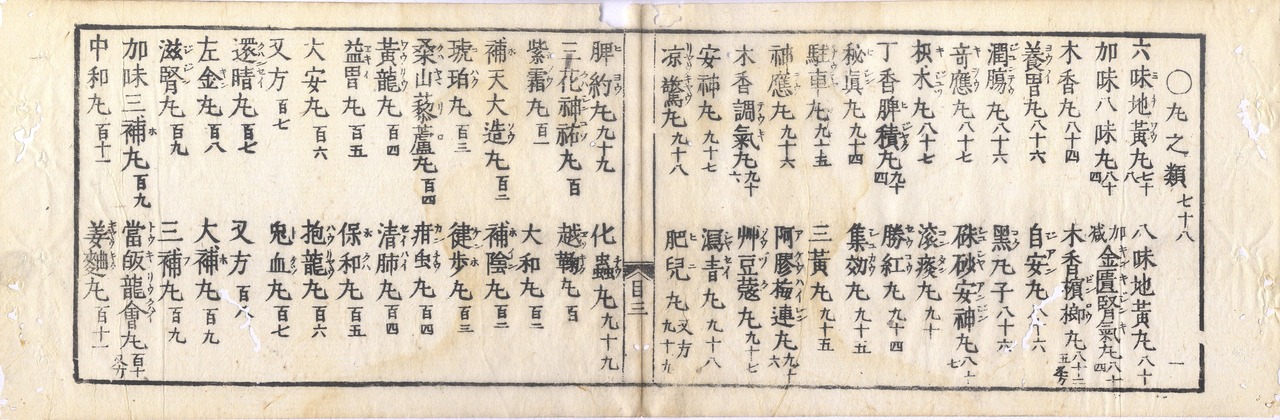 〇丸之類 七十八 一
六味地黃丸 七十八 八味地黃丸 八十
加味八味丸 八十四 加減金匱腎氣丸 八十四
木香丸 八十四 木香檳榔丸 八十二 五
養胃丸 八十六 自安丸 八十六
潤腸丸 八十六 黑丸子 八十六
奇應丸 八十七 硃砂安神丸 八十七
枳水丸 八十七 滚痰丸 九十
丁香脾積丸 九十四 勝紅丸 九十四
秘眞丸 九十四 集効丸 九十五
駐車丸 九十五 三黃丸 九十五
神應丸 九十六 阿膠梅連丸 九十六
木香調氣丸 九十六 艸豆蔲丸 九十七
安神丸 九十七 瀉青丸 九十八
凉驚丸 九十八 肥兒丸 又方 九十九
目三
脾約丸 九十九 化蟲丸 九十九
三花神祐丸 百 越鞠丸 百
紫霜丸 百一 大和丸 百二
補天大造丸 百二 補陰丸 百二
琥珀丸 百三 健步丸 百三
桑山藜蘆丸 百四 疳虫丸 百四
黃龍丸 百四 清肺丸 百四
益胃丸 百五 保和丸 百五
大安丸 百六 抱龍丸 百六
又方 百七 兔血丸 百七
還睛丸 百七 又方 百八
左金丸 百八 大補丸 百九
滋腎丸 百九 三補丸 百九
加味三補丸 百九 當皈龍會丸 百十
中和丸 百十一 姜麯丸 百十一